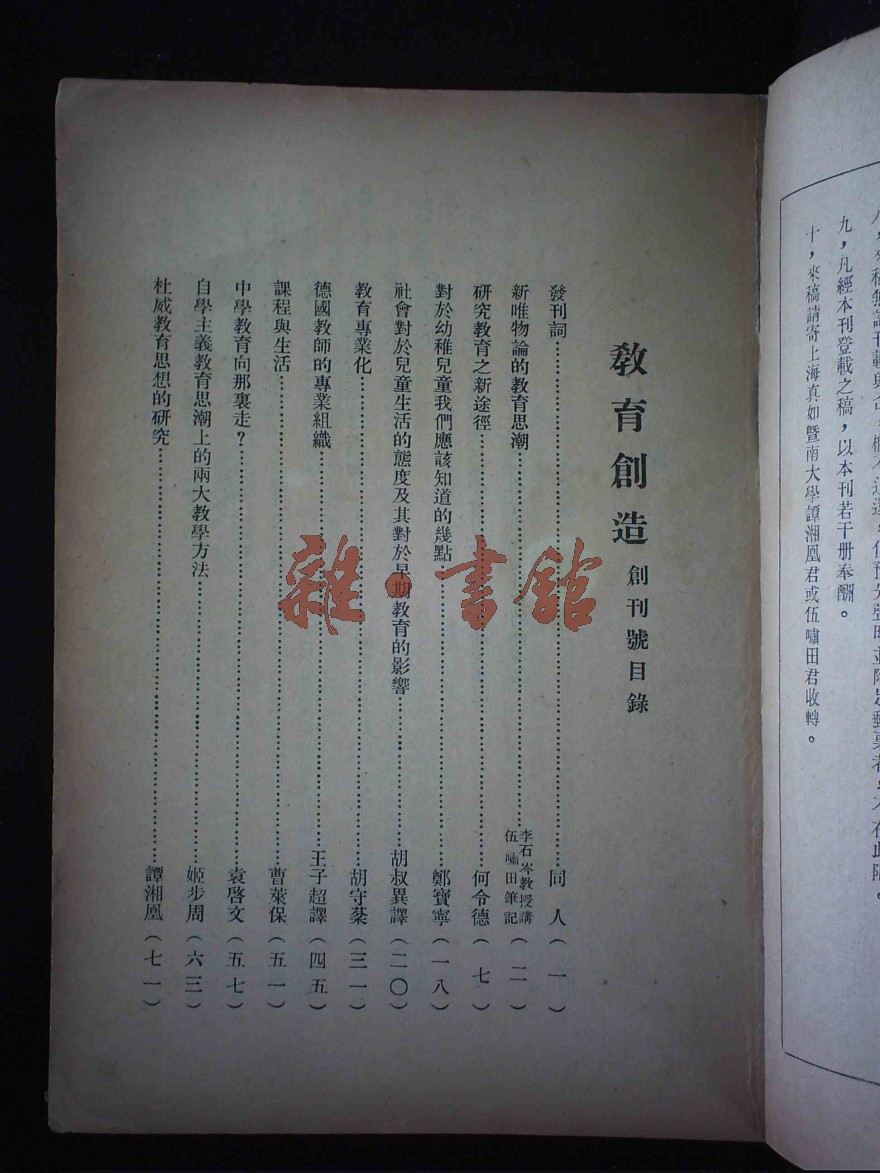 九，凡經本刊登載之稿，以本刊若干册奉酬。
十，來稿請寄上海真如暨南大學譚湘凰君或伍嘯田君收轉。
教育創造 創刊號目錄
發刊詞……同人（一）
新唯物論的教育思潮……李石岑教授講 伍嘯田筆記（二）
研究教育之新途徑……何令德（七）
對於幼稚兒童我們應該知道的幾點……鄭寶寧（一八）
社會對於兒童生活的態度及其對於早期教育的影響……胡叔異譯（二〇）
教育專業化……胡守棻（三一）
德國教師的專業組織……王子超譯（四五）
課程與生活……曹萊保（五一）
中學教育向那裏走？……袁啓文（五七）
自學主義教育思潮上的兩大教學方法……姬步周（六三）
杜威教育思想的研究……譚湘凰（七一）
雜·書館